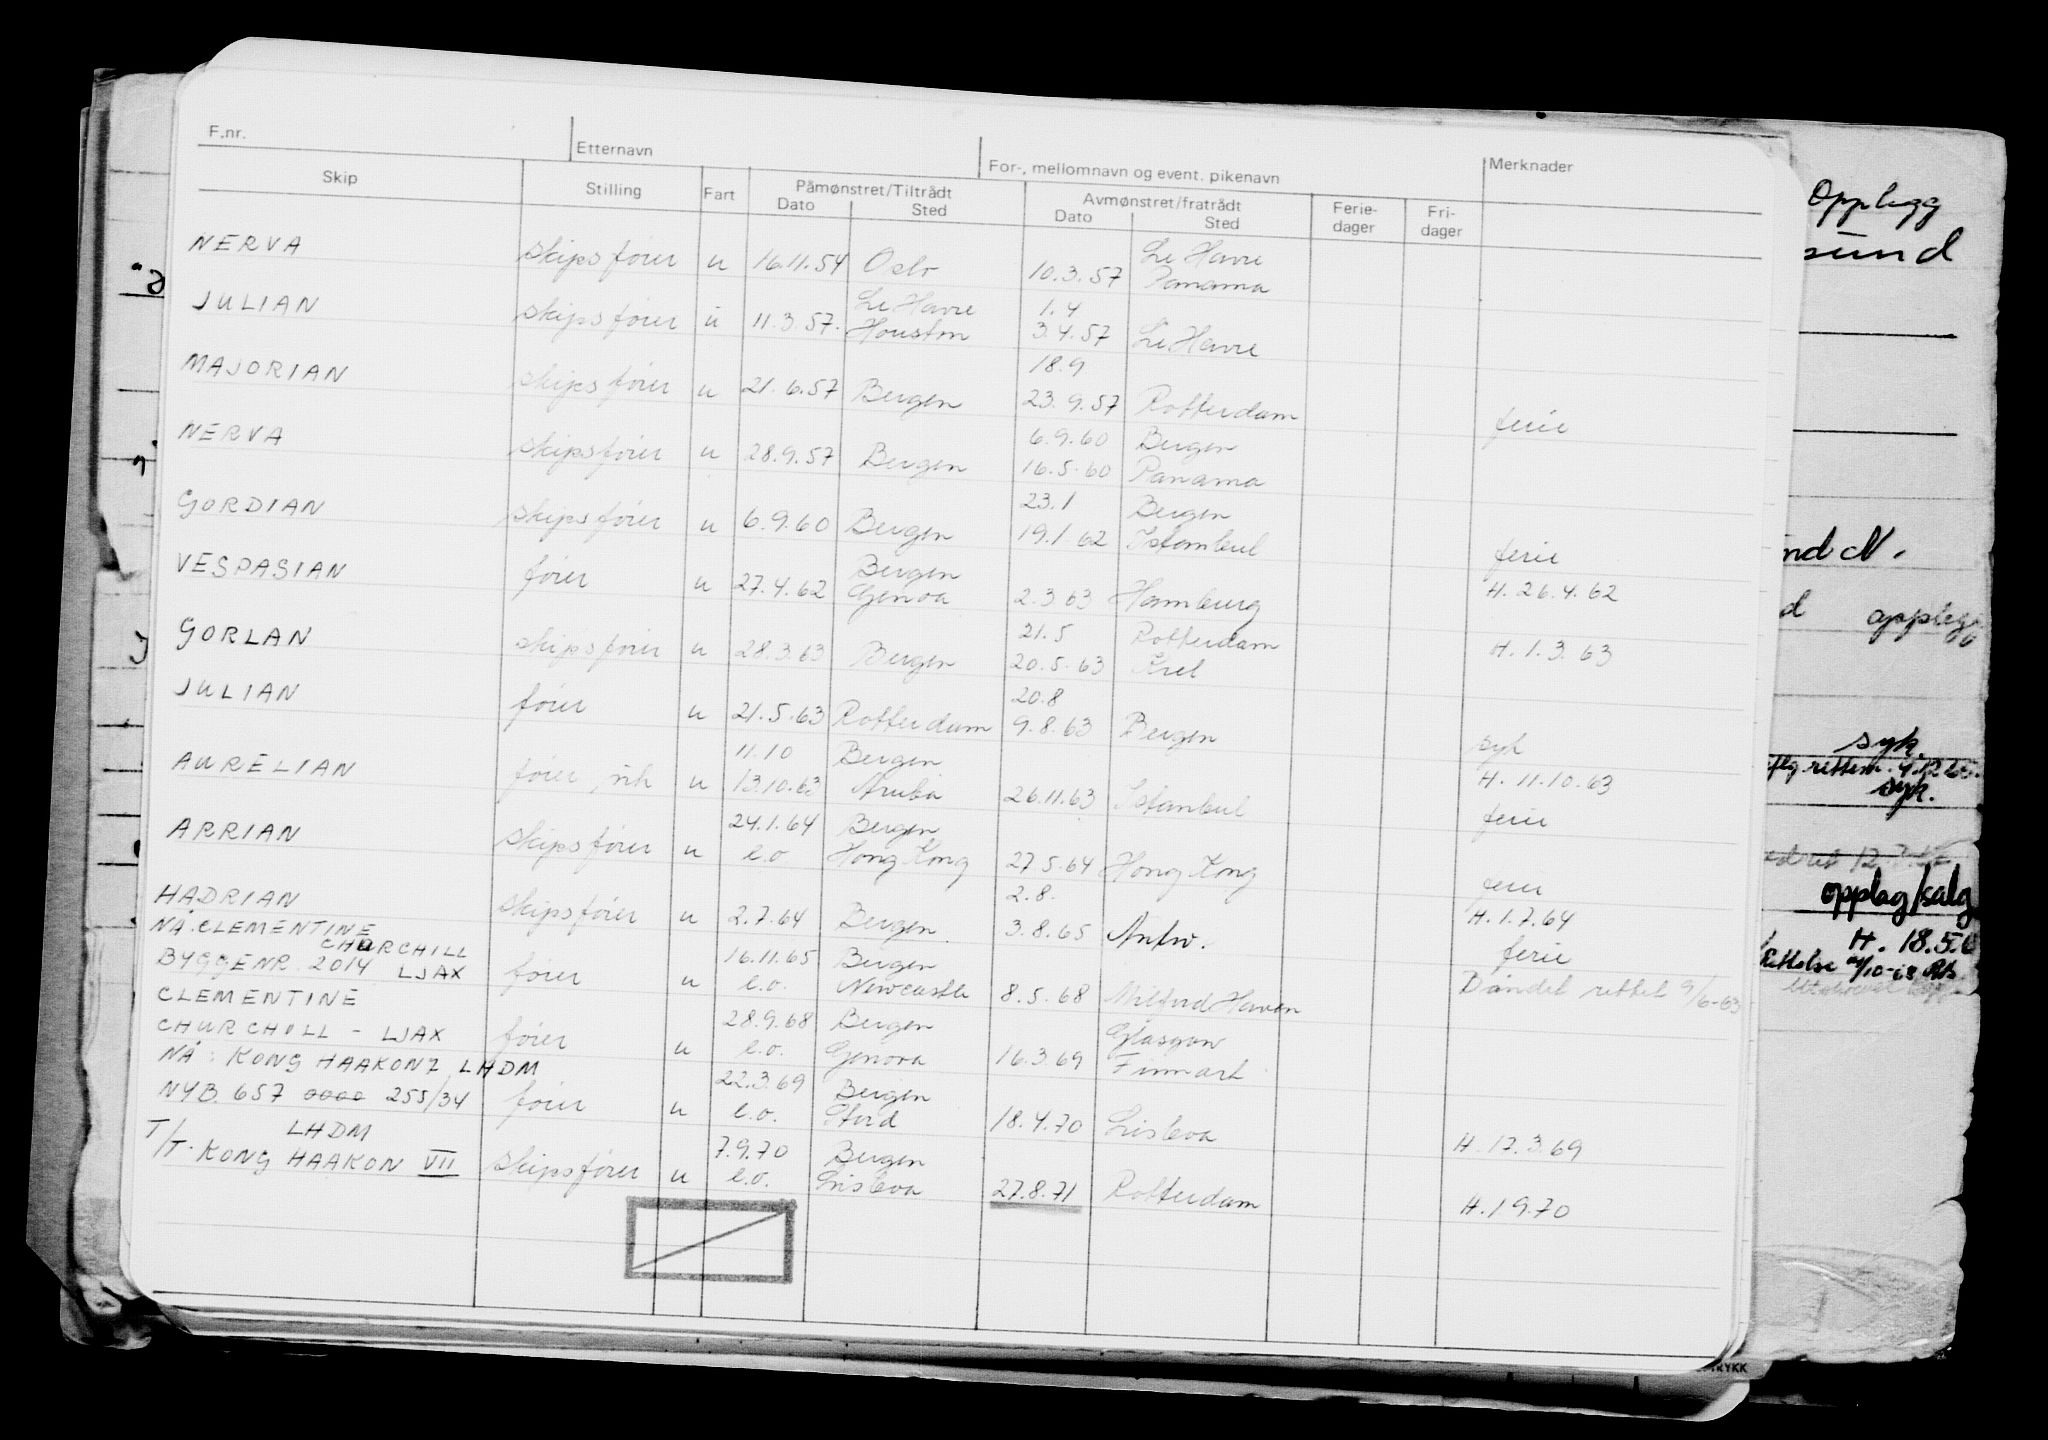 F.nr. Etternavn For-, mellomnavn og event. pikenavn Merknader
Skip Stilling Fart Påmønstret/Tiltrådt Avmønstret/fratrådt Ferie- Fri-
Dato Sted Dato Sted dager dager
Le Havre
NERVA skipsfører u 16.11.54 Oslo 10.3.57 Panama
Le Havre 1.4
JULIAN skipsfører u 11.3.57. Houston 3.4.57 Le Havre
18.9
MAJORIAN skipsfører u 21.6.57 Bergen 23.9.57 Rotterdam ferie
6.9.60 Bergen
NERVA skipsfører u 28.9.57 Bergen 16.5.60 Panama
23.1 Bergen
GORDIAN skipsfører u 6.9.60 Bergen 19.1.62 Istambul ferie
Bergen
VESPASIAN fører u 27.4.62 Genoa 2.3 63 Hamburg H. 26.4.62
21.5 Rotterdam
GORLAN skipsfører u 28.3.63 Bergen 20.5.63 H. 1.3.63
20.8
JULIAN fører u 21.5.63 Rotterdam 9.8.63 Bergen syk
11.10 Bergen H. 11.10.63
AURELIAN fører u 13.10.63 Aruba 26.11.63 Istanbul ferie
24.1.64 Bergen
ARRIAN skipsfører u e.o. Hong Kong 27.5.64 Hong Kong ferie
2.8. H. 1.7.64
HADRIAN skipsfører u 2.7.64 Bergen 3.8.65 Antw. ferie
NÅ: CLEMENTINE
CHURCHILL 16.11.65 Bergen
BYGGENR. 2014 LJAX fører u e.o. Newcastle 8.5.68 Milford Haven rettet 9/6-63
CLEMENTINE 28.9.68 Bergen Glasgow
CHURCHILL - LJAX fører u e.o. Genova 16.3.69 Finnart
NÅ: KONG HAAKON 7 LHDM 22.3.69 Bergen
NYB. 657 255/34 fører u e.o. Stord 18.4.70 Lisboa H. 17.3.69
LHDM 7.9.70 Bergen
T/T. KONG HAAKON VII skipsfører u e.o. Lisboa 27.8.71 Rotterdam H. 1 9.70
Opplegg
sund
nd N.
d opplegg
syk.
syk.
opplag/salg
H. 18.5.6
Rettelse
RYKK